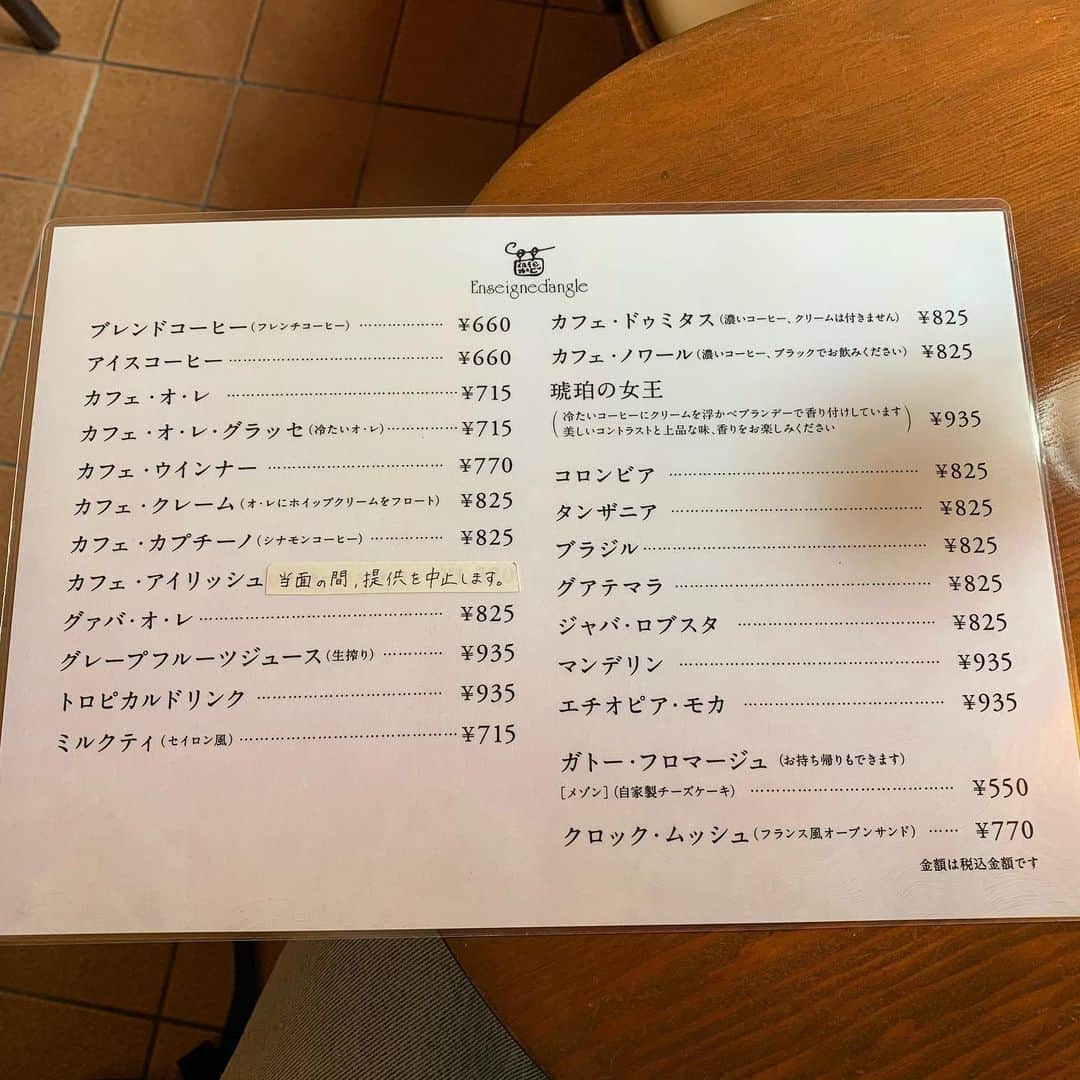 Enseigned'angle
ブレンドコーヒー(フレンチコーヒー) ……………… ¥660
アイスコーヒー ……………………………… ¥660
カフェ・オ・レ ……………………………… ¥715
カフェ・オ・レ・グラッセ(冷たいオ・レ) ………… ¥715
カフェ・ウインナー ………………………… ¥770
カフェ・クレーム(オ・レにホイップクリームをフロート) ¥825
カフェ・カプチーノ(シナモンコーヒー) ………… ¥825
カフェ・アイリッシュ 当面の間,提供を中止します。
グァバ・オ・レ ……………………………… ¥825
グレープフルーツジュース(生搾り) ……… ¥935
トロピカルドリンク ………………………… ¥935
ミルクティ(セイロン風) …………………… ¥715
カフェ・ドゥミタス(濃いコーヒー、クリームは付きません) ¥825
カフェ・ノワール(濃いコーヒー、ブラックでお飲みください) ¥825
琥珀の女王
(冷たいコーヒーにクリームを浮かべブランデーで香り付けしています
美しいコントラストと上品な味、香りをお楽しみください) ¥935
コロンビア ……………………………… ¥825
タンザニア ……………………………… ¥825
ブラジル ………………………………… ¥825
グアテマラ ……………………………… ¥825
ジャバ・ロブスタ ……………………… ¥825
マンデリン ……………………………… ¥935
エチオピア・モカ ……………………… ¥935
ガトー・フロマージュ(お持ち帰りもできます)
[メゾン](自家製チーズケーキ) ……………………… ¥550
クロック・ムッシュ(フランス風オープンサンド) …… ¥770
金額は税込金額です